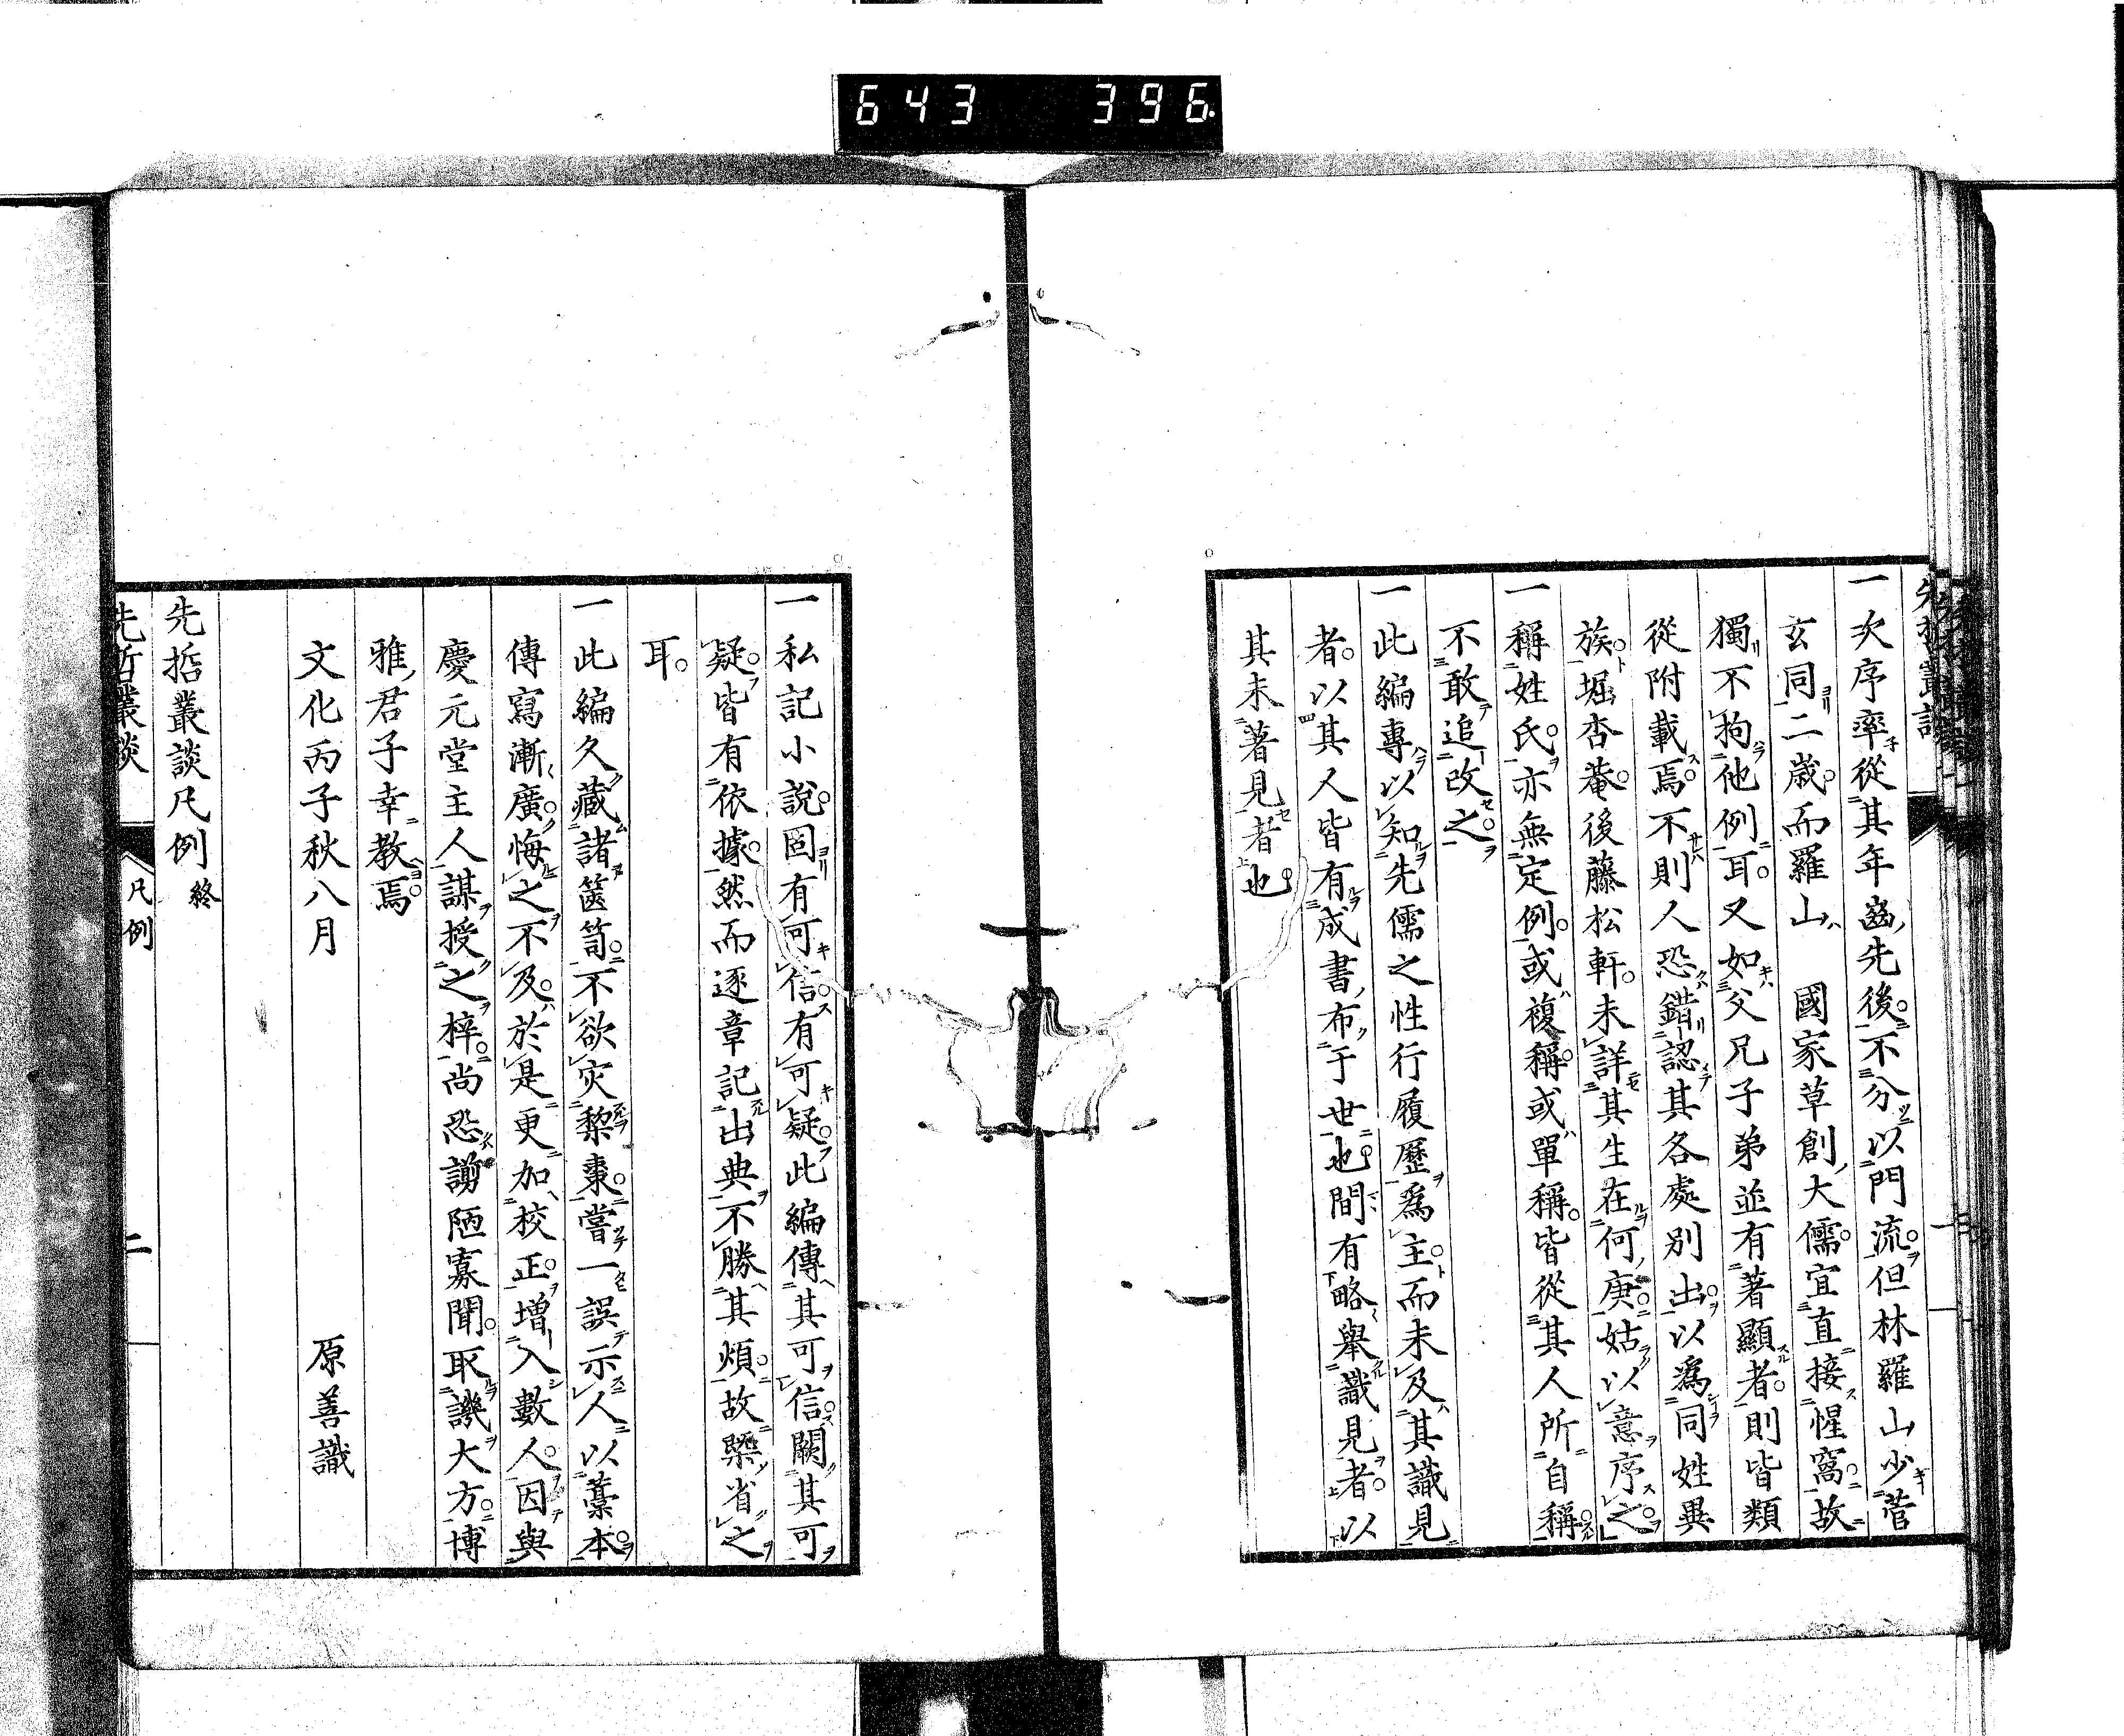 643 396
一次序率從其年齒先後不分以門流但林羅山少菅
玄同二歲而羅山 國家草創大儒宜直接惺窩故
獨不拘他例耳又如父兄子弟並有著顯者則皆類
從附載焉不則人恐錯認其各處別出以爲同姓異
族堀杏菴後藤松軒未詳其生在何庚姑以意序之
一稱姓氏亦無定例或複稱或單稱皆從其人所自稱
不敢追改之
一此編專以知先儒之性行履歷爲主而未及其識見
者以其人皆有成書布于世也間有略舉識見者以
其未著見者也
一私記小說固有可信有可疑此編傳其可信闕其可
疑皆有依據然而逐章記出典不勝其煩故槩省之
耳
一此編久藏諸篋笥不欲灾黎棗嘗一誤示人以藁本
傳寫漸廣悔之不及於是更加校正增入數人因與
慶元堂主人謀授之梓尚恐謭陋寡聞取譏大方博
雅君子幸教焉
文化丙子秋八月 原善識
先哲叢談凡例終
先哲叢談 凡例 二